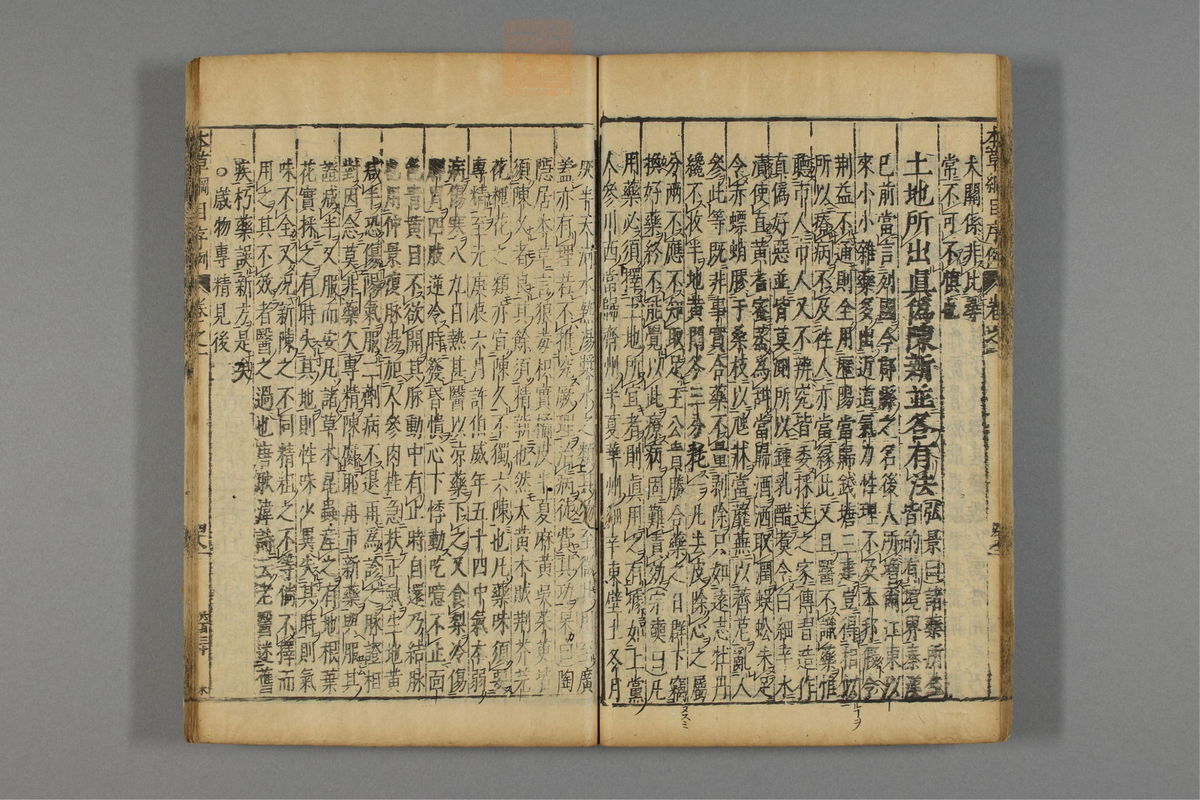 本草綱目序例 卷之一
大關係非比尋
常不可不慎也
土地所出眞僞陳新並各有法 弘景曰諸藥所生皆的有境界秦漢
已前當言列國今郡縣之名後人所增爾江東以
來小小雜藥多出近道氣力性理不及本邦假令
荊益不通則全用歷陽當歸錢塘三建豈得相似
所以療病不及往人亦當緣此又且醫不識藥惟
聽市人市人又不辨究皆委採送之家傳習造作
眞僞好惡並皆莫測所以鍾乳醋煑令白細辛水
漬使直黃耆蜜蒸爲甜當歸酒洒取潤蜈蚣朱足
令赤螵蛸膠于桑枝以虺牀當蘼蕪以薺苨亂人
參此等既非事實合藥不量剝除只如遠志牡丹
纔不收半地黃門冬三分耗一凡去皮除心之屬
分兩不應不知取足王公貴勝合藥之日群下竊
換好藥終不能覺以此療病固難責効 宗奭曰凡
用藥必須擇土地所宜者則眞用之有據如上黨
人參川西當歸齊州半夏華州細辛東壁土冬月
隱居本草言狼毒枳實橘皮半夏麻黃吳茱萸皆
須陳久者良其餘須精新也然大黃木賊荊芥芫
花槐花之類亦宜陳久不獨六陳也凡藥味須要
專精至元庚辰六月許伯威年五十四中氣本弱
病傷寒八九日熱甚醫以凉藥下之又食梨冷傷
脾胃四肢逆冷時發昏憒心下悸動吃噫不止面
色青黃目不欲開其脉動中有止時自還乃結脉
也用仲景復脉湯加人參肉桂急扶正氣生地黃
减半恐傷陽氣服二劑病不退再爲診之脉證相
對因念莫非藥欠專精陳腐耶再市新藥與服其
證减半又服而安凡諸草木昆蟲産之有地根葉
花實採之有時失其地則性味少異失其時則氣
味不全又况新陳之不同精粗之不等倘不擇而
用之其不效者醫之過也唐耿湋詩云老醫迷舊
疾朽藥誤新方是矣
○歲物專精見後
本草綱目序例 卷之一